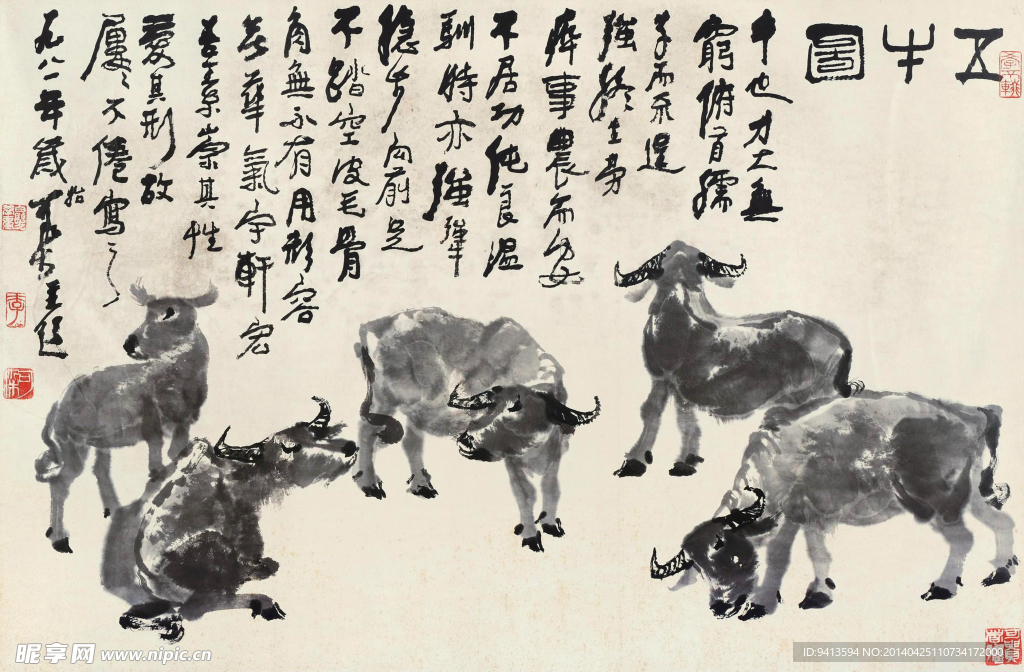 五牛圖
牛也力大無
窮俯首孺
子而不逞
強終生勞
瘁事農而安
不居功純良溫
馴時亦強犟
穩步向前足
不踏空皮毛骨
角無不有用形容
無華氣宇軒宏
吾崇其性
愛其形故
屢々不倦寫之
一九八一年歲始可染
昵享网 www.nipic.cn
ID:9413594 NO:20140425110734172000